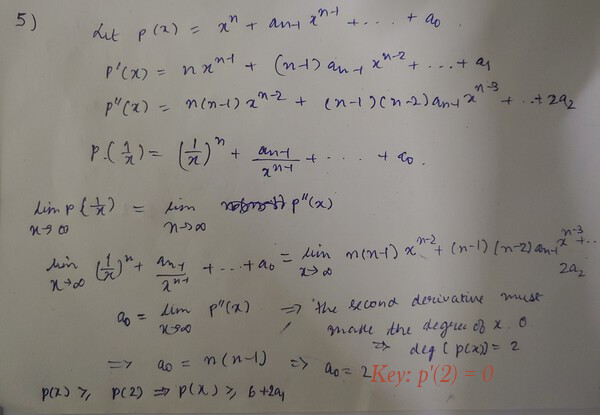 5)
Let p(x) = x^n + a_{n-1} x^{n-1} + . . . . + a_0.
p'(x) = n x^{n-1} + (n-1) a_{n-1} x^{n-2} + . . . + a_1
p''(x) = n(n-1) x^{n-2} + (n-1)(n-2) a_{n-1} x^{n-3} + . . + 2a_2
p.(1/x) = (1/x)^n + a_{n-1}/x^{n-1} + . . . . + a_0.
lim_{x→∞} p(1/x) = lim_{x→∞} p''(x)
lim_{x→∞} (1/x)^n + a_{n-1}/x^{n-1} + . . . + a_0 = lim_{x→∞} n(n-1) x^{n-2} + (n-1)(n-2) a_{n-1} x^{n-3} + . . 2a_2
a_0 = lim_{x→∞} p''(x) ⇒ the second derivative must
make the degree of x . 0
⇒ deg(p(x)) = 2
⇒ a_0 = n(n-1) ⇒ a_0 = 2
Key: p'(2) = 0
p(x) ≥ p(2) ⇒ p(x) ≥ 6+2a_1